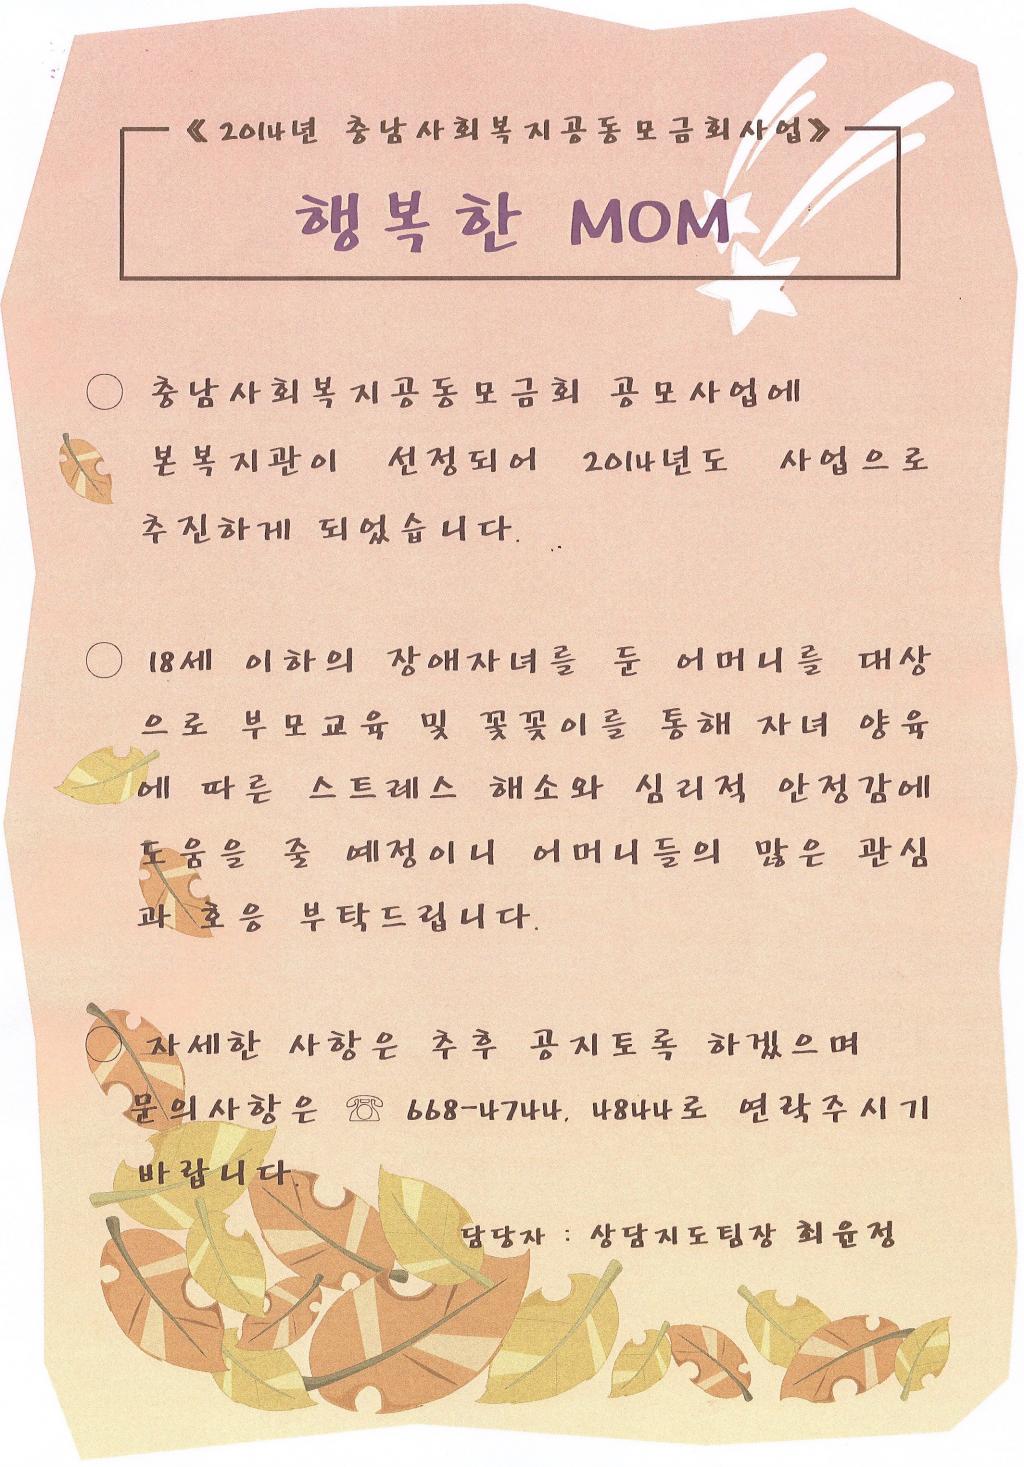 《2014년 충남사회복지공동모금회사업》
행복한 MOM
○ 충남사회복지공동모금회 공모사업에
본복지관이 선정되어 2014년도 사업으로
추진하게 되었습니다.
○ 18세 이하의 장애자녀를 둔 어머니를 대상
으로 부모교육 및 꽃꽂이를 통해 자녀 양육
에 따른 스트레스 해소와 심리적 안정감에
도움을 줄 예정이니 어머니들의 많은 관심
과 호응 부탁드립니다.
○ 자세한 사항은 추후 공지토록 하겠으며
문의사항은 ☏ 668-4744, 4844로 연락주시기
바랍니다.
담당자 : 상담지도팀장 최윤정